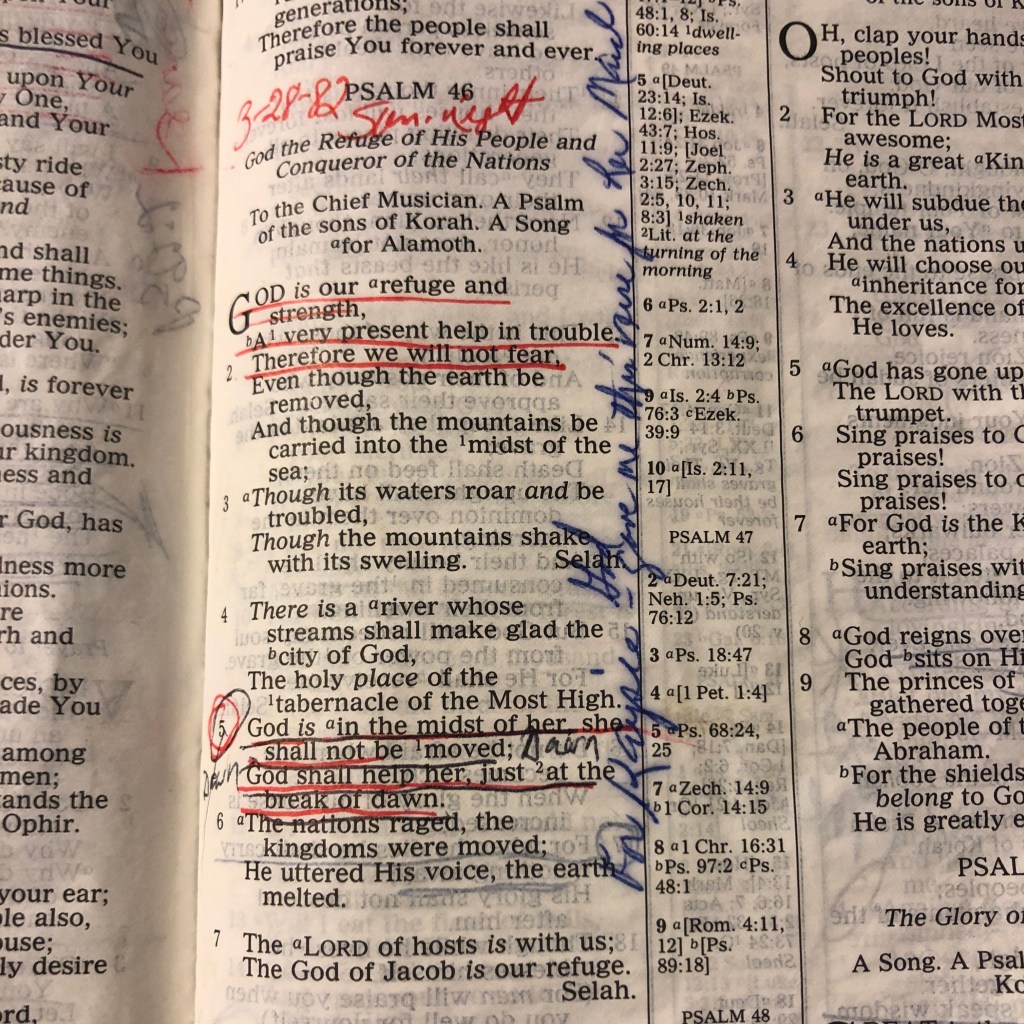 s blessed You
upon Your
y One,
and Your
sty ride
cause of
nd
nd shall
me things.
harp in the
's enemies;
der You.
l, is forever
ousness is
ur kingdom.
ness and
r God, has
dness more
nions.
re
rh and
ces, by
ade You
among
men;
tands the
Ophir.
your ear;
ple also,
ouse;
ly desire
ord,
generations;
Therefore the people shall
praise You forever and ever.
3-28-82 PSALM 46
Sun. night
God the Refuge of His People and
Conqueror of the Nations
To the Chief Musician. A Psalm
of the sons of Korah. A Song
ᵃfor Alamoth.
GOD is our ᵃrefuge and
strength,
ᵇA¹ very present help in trouble.
2 Therefore we will not fear,
Even though the earth be
removed,
And though the mountains be
carried into the ¹midst of the
sea;
3 ᵃThough its waters roar and be
troubled,
Though the mountains shake
with its swelling. Selah
4 There is a ᵃriver whose
streams shall make glad the
ᵇcity of God,
The holy place of the
¹tabernacle of the Most High.
5 God is ᵃin the midst of her, she
shall not be ¹moved; Dawn
Dawn God shall help her, just ²at the
break of dawn.
6 ᵃThe nations raged, the
kingdoms were moved;
He uttered His voice, the earth
melted.
7 The ᵃLORD of hosts is with us;
The God of Jacob is our refuge.
Selah.
God gave me this verse for her
48:1, 8; Is.
60:14 ¹dwell-
ing places
5 ᵃ[Deut.
23:14; Is.
12:6]; Ezek.
43:7; Hos.
11:9; [Joel
2:27; Zeph.
3:15; Zech.
2:5, 10, 11;
8:3] ¹shaken
²Lit. at the
turning of the
morning
6 ᵃPs. 2:1, 2
7 ᵃNum. 14:9;
2 Chr. 13:12
9 ᵃIs. 2:4 ᵇPs.
76:3 ᶜEzek.
39:9
10 ᵃ[Is. 2:11,
17]
PSALM 47
2 ᵃDeut. 7:21;
Neh. 1:5; Ps.
76:12
3 ᵃPs. 18:47
4 ᵃ[1 Pet. 1:4]
5 ᵃPs. 68:24,
25
7 ᵃZech. 14:9
ᵇ1 Cor. 14:15
8 ᵃ1 Chr. 16:31
ᵇPs. 97:2 ᶜPs.
48:1
9 ᵃ[Rom. 4:11,
12] ᵇ[Ps.
89:18]
PSALM 48
OH, clap your hands
peoples!
Shout to God with
triumph!
2 For the LORD Most
awesome;
He is a great ᵃKin
earth.
3 ᵃHe will subdue the
under us,
And the nations u
4 He will choose ou
ᵃinheritance for
The excellence of
He loves.
5 ᵃGod has gone up
The LORD with th
trumpet.
6 Sing praises to G
praises!
Sing praises to o
praises!
7 ᵃFor God is the K
earth;
ᵇSing praises wit
understanding
8 ᵃGod reigns over
God ᵇsits on Hi
9 The princes of
gathered toge
ᵃThe people of t
Abraham.
ᵇFor the shields
belong to Go
He is greatly e
PSAL
The Glory o
A Song. A Psal
Ko